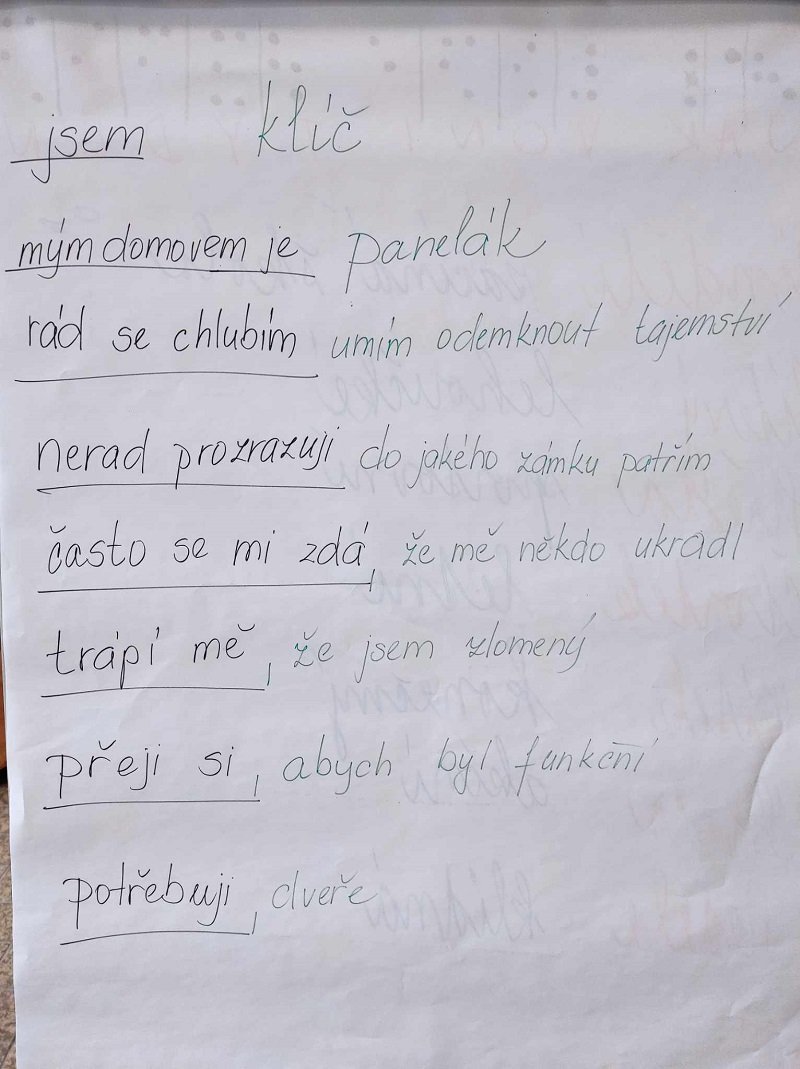 jsem klíč
mým domovem je panelák
rád se chlubím umím odemknout tajemství
nerad prozrazuji do jakého zámku patřím
často se mi zdá, že mě někdo ukradl
trápí mě, že jsem zlomený
přeji si, abych byl funkční
potřebuji, dveře